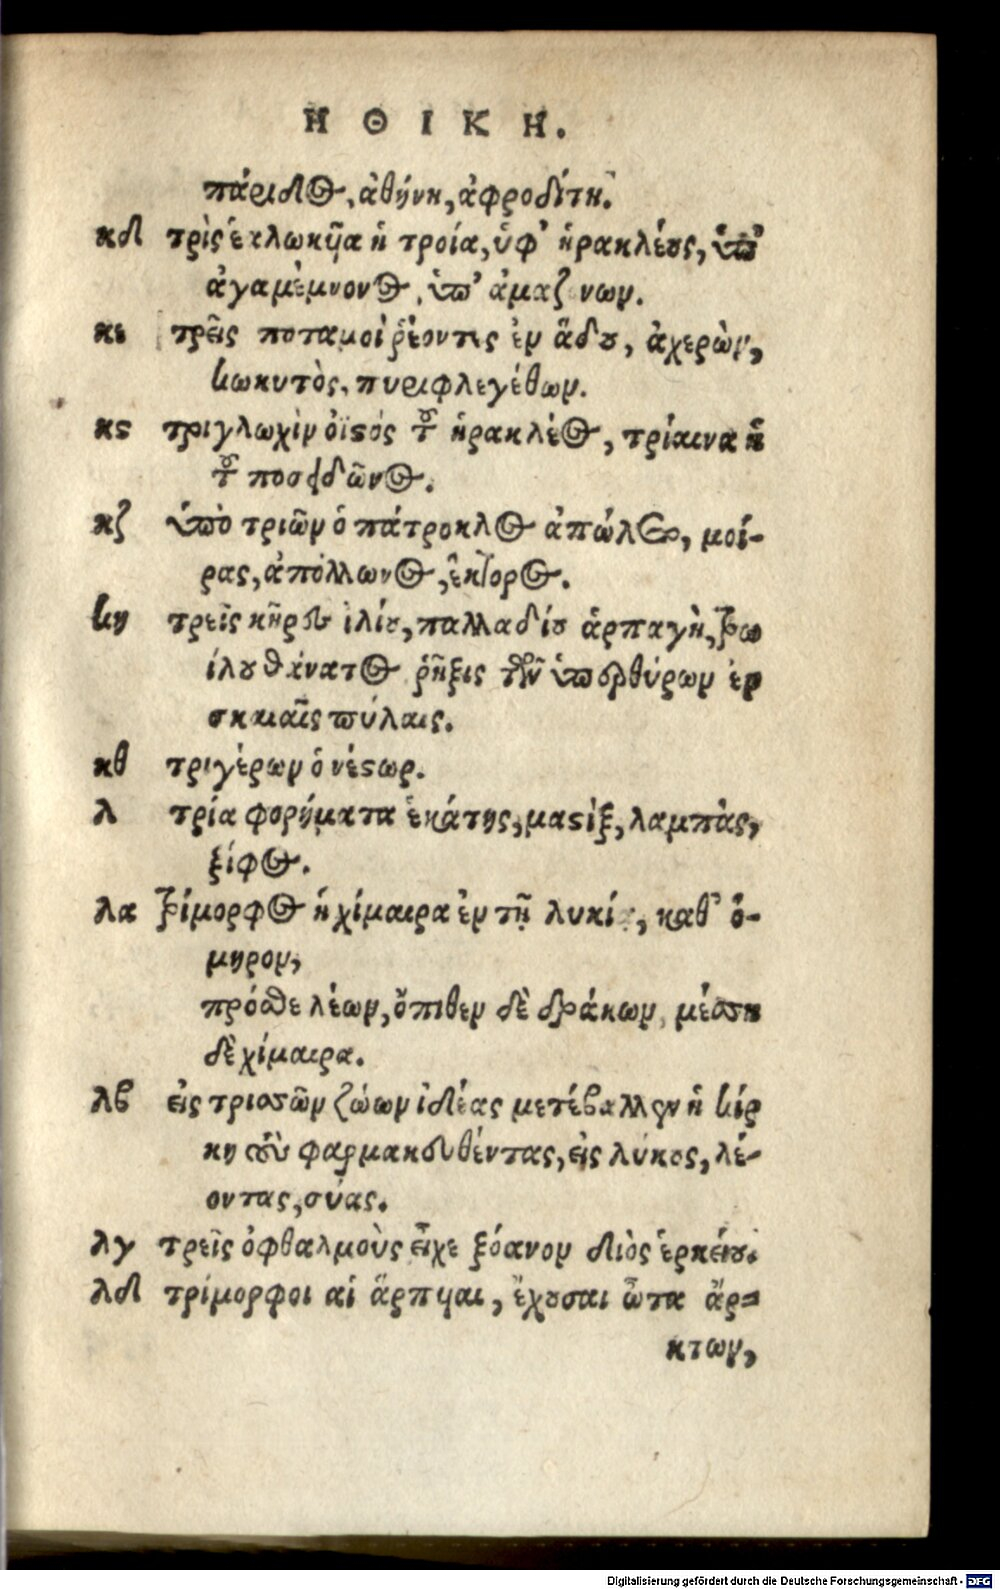 ΗΘΙΚΗ.
πάριδος, ἀθήνη, ἀφροδίτη.
κδ τρὶς ἑκλωκῆα ἡ τροία, ὑφ' ἡρακλέους, ὑπ'
ἀγαμέμνονος, ὑπ' ἀμαζόνων.
κε τρεῖς ποταμοὶ ῥέοντες ἐν ᾅδου, ἀχερὼν,
κωκυτὸς, πυριφλεγέθων.
κϛ τριγλωχὶν ὀϊστός τοῦ ἡρακλέος, τρίαινα ἡ
τοῦ ποσειδῶνος.
κζ ὑπὸ τριῶν ὁ πάτροκλος ἀπώλετο, μοί-
ρας, ἀπόλλωνος, ἕκτορος.
κη τρεῖς κῆρες ἰλίου, παλλαδίου ἁρπαγὴ, τρω
ίλου θάνατος ῥῆξις τῶν ὑπερθύρων ἐν
σκαιαῖς πύλαις.
κθ τριγέρων ὁ νέστωρ.
λ τρία φορήματα ἑκάτης, μαστὶξ, λαμπὰς,
ξίφος.
λα τρίμορφος ἡ χίμαιρα ἐν τῇ λυκίᾳ, καθ' ὅ-
μηρον,
πρόσθε λέων, ὄπιθεν δὲ δράκων, μέσση
δὲ χίμαιρα.
λβ εἰς τρισσῶν ζώων ἰδέας μετέβαλλεν ἡ κίρ
κη τοὺς φαρμακευθέντας, εἰς λύκος, λέ-
οντας, σύας.
λγ τρεῖς ὀφθαλμοὺς εἶχε ξόανον διὸς ἑρκείου.
λδ τρίμορφοι αἱ ἅρπυιαι, ἔχουσαι ὦτα ἄρ-
κτων,
Digitalisierung gefördert durch die Deutsche Forschungsgemeinschaft - DFG